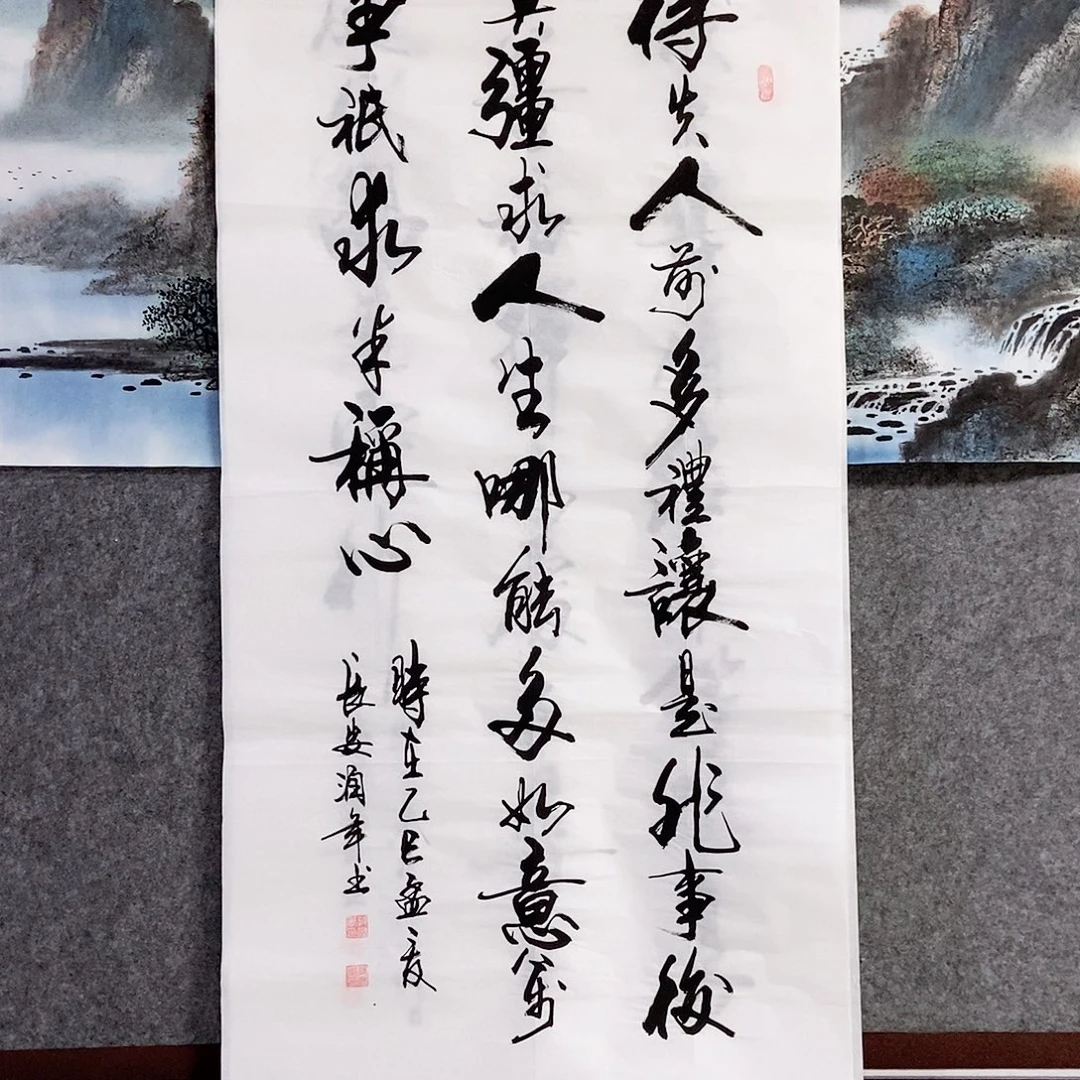 得失人前多禮讓是非事後
莫彊求人生哪能多如意萬
事祇求半稱心
時在乙巳孟夏
長安潤年书